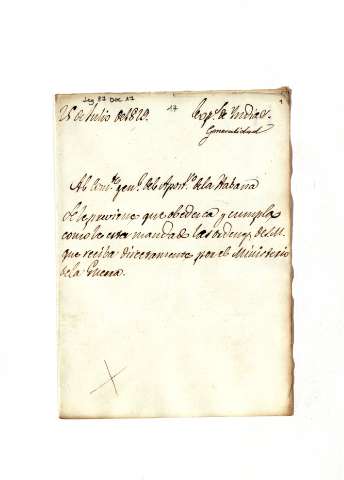 Leg 87 Doc 17
25 de Julio de 1829. 17 Exp.s de Indias. 1
Generalidad
Al Com.te gen.l del Apost.o de la Habana
se le previene que obedezca y cumpla
como le está mandado las ordenes de S.M.
que reciba directamente por el Ministerio
de la Guerra.